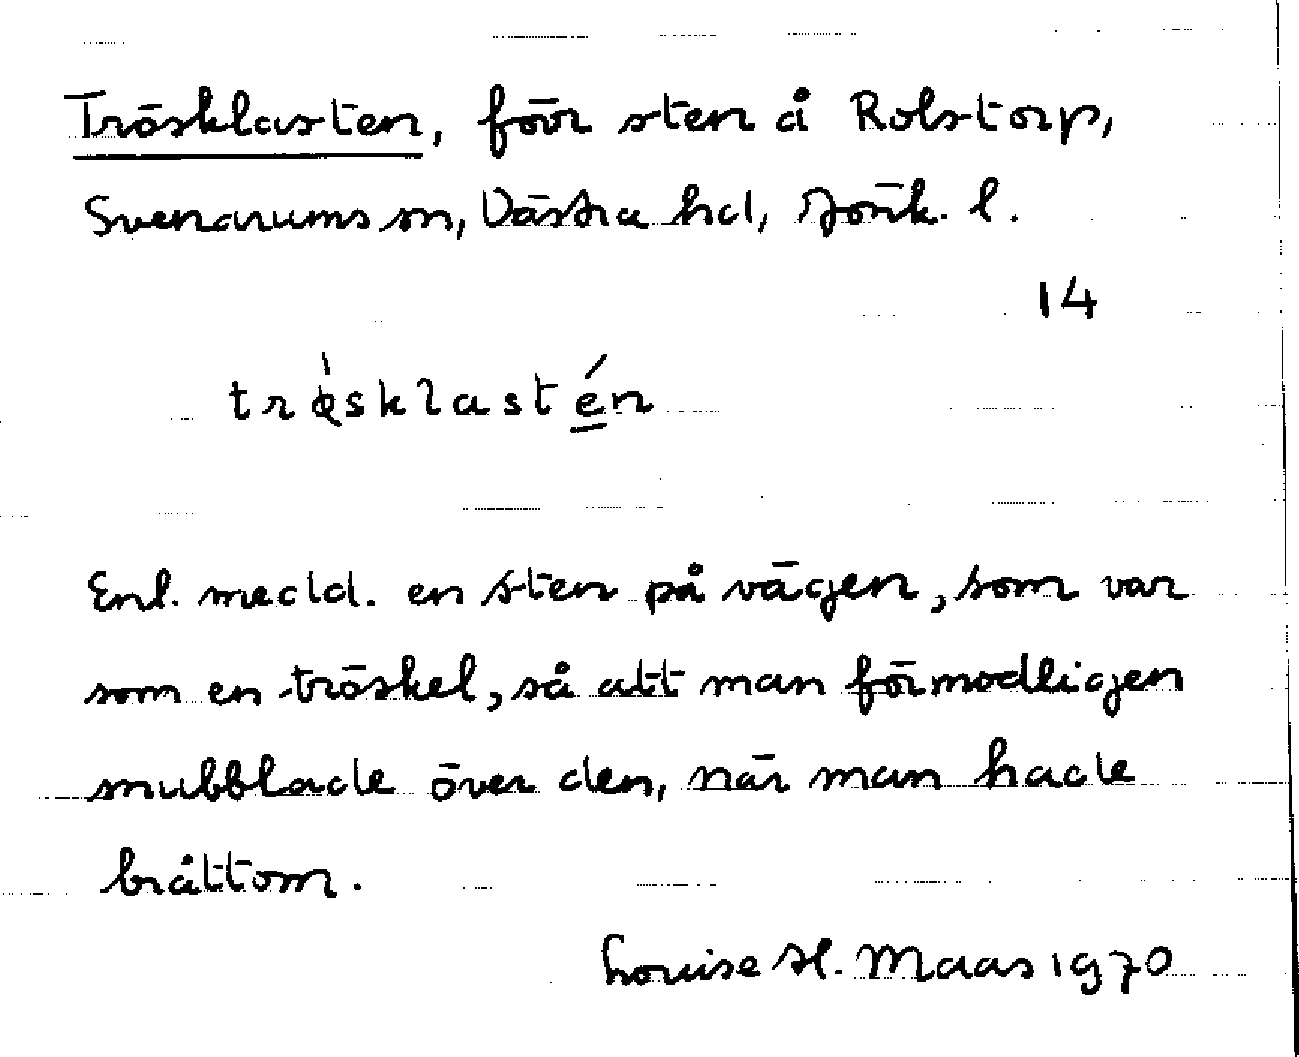 Trösklasten, förr sten å Rolstorp,
Svenarums sn, Västra hd, Jönk. l.
14
trǫ̀sklastén
Enl. medd. en sten på vägen, som var
som en tröskel, så att man förmodligen
snubblade över den, när man hade
bråttom.
Louise H. Maas 1970